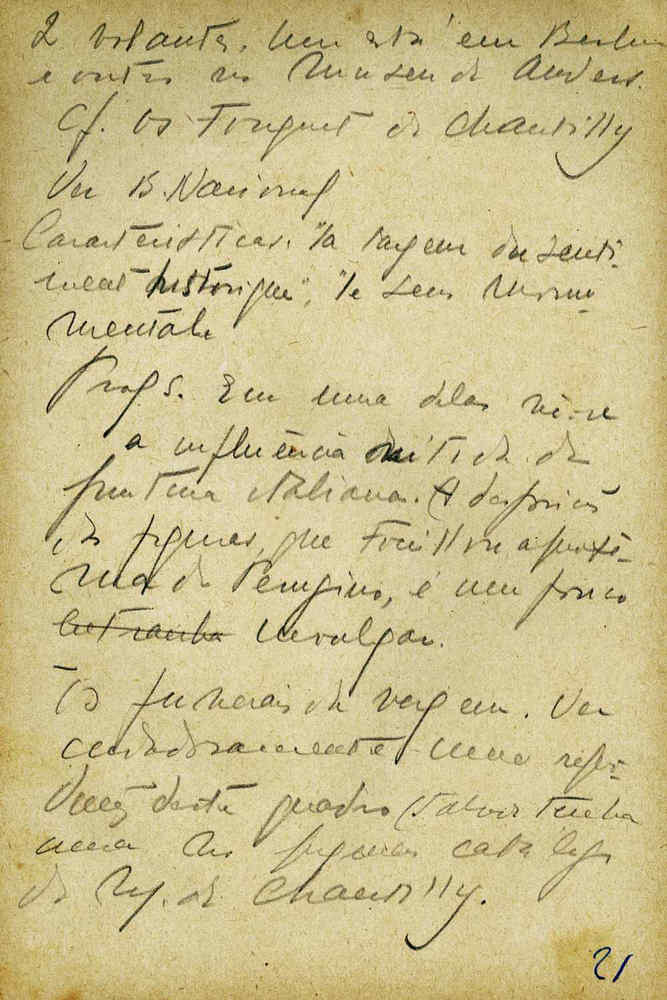 2 volantes. Um está em Berlim
e outro no Museu de Anvers.
Cf. os Fouquet de Chantilly
Ver B. Nacional
Características. "la largeur du senti-
ment historique", "le sens monu-
mental"
Profs. Em uma delas vê-se
a influência nitida da
pintura italiana. A disposição
das figuras, que Focillon aproxi-
ma do Perugino, é um pouco
estranha invulgar.
Os funerais da Vergem. Ver
cuidadosamente uma repro-
dução deste quadro (Talvez tenha
uma no pequeno catálogo
do M. de Chantilly.
21